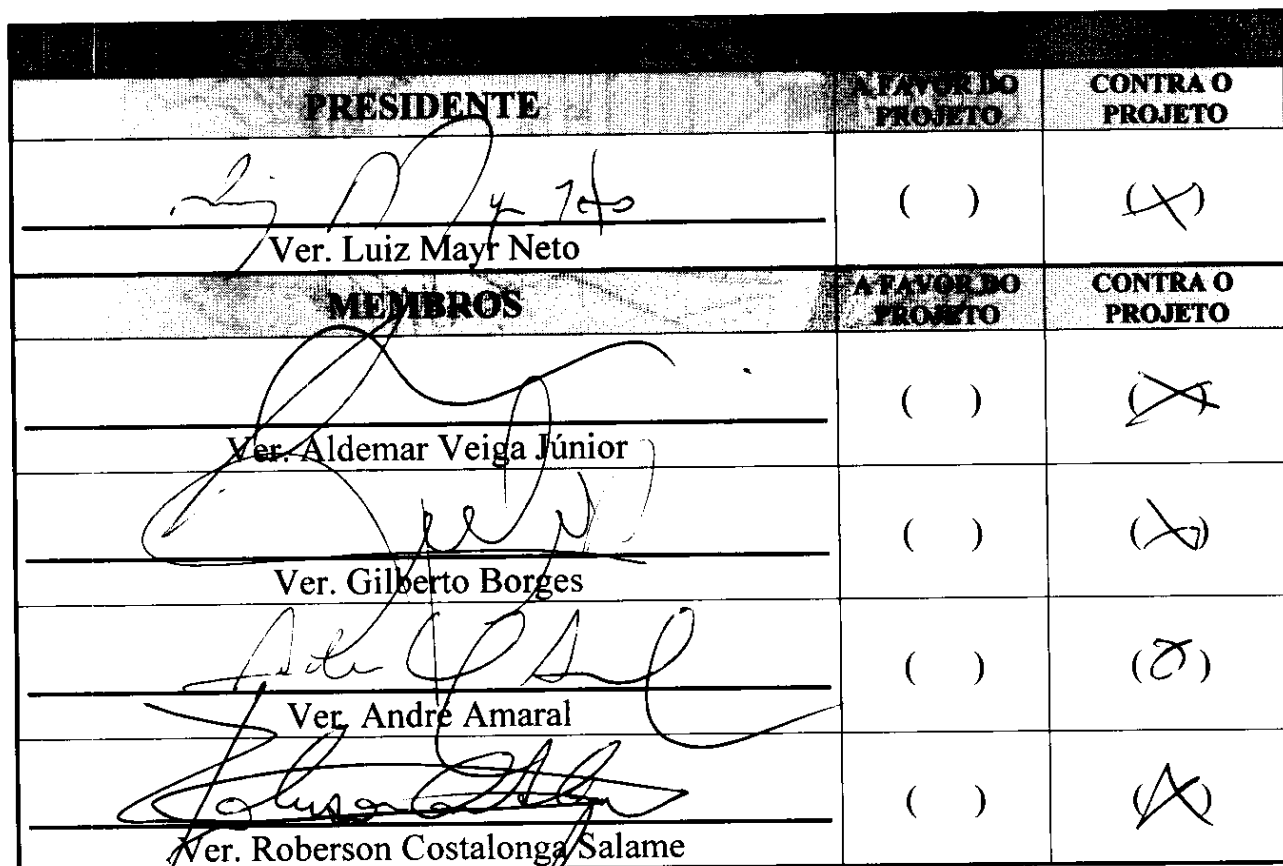 PRESIDENTE
A FAVOR DO PROJETO
CONTRA O PROJETO
( )
(X)
Ver. Luiz Mayr Neto
MEMBROS
A FAVOR DO PROJETO
CONTRA O PROJETO
( )
(X)
Ver. Aldemar Veiga Júnior
( )
(X)
Ver. Gilberto Borges
( )
( )
Ver. André Amaral
( )
(X)
Ver. Roberson Costalonga Salame